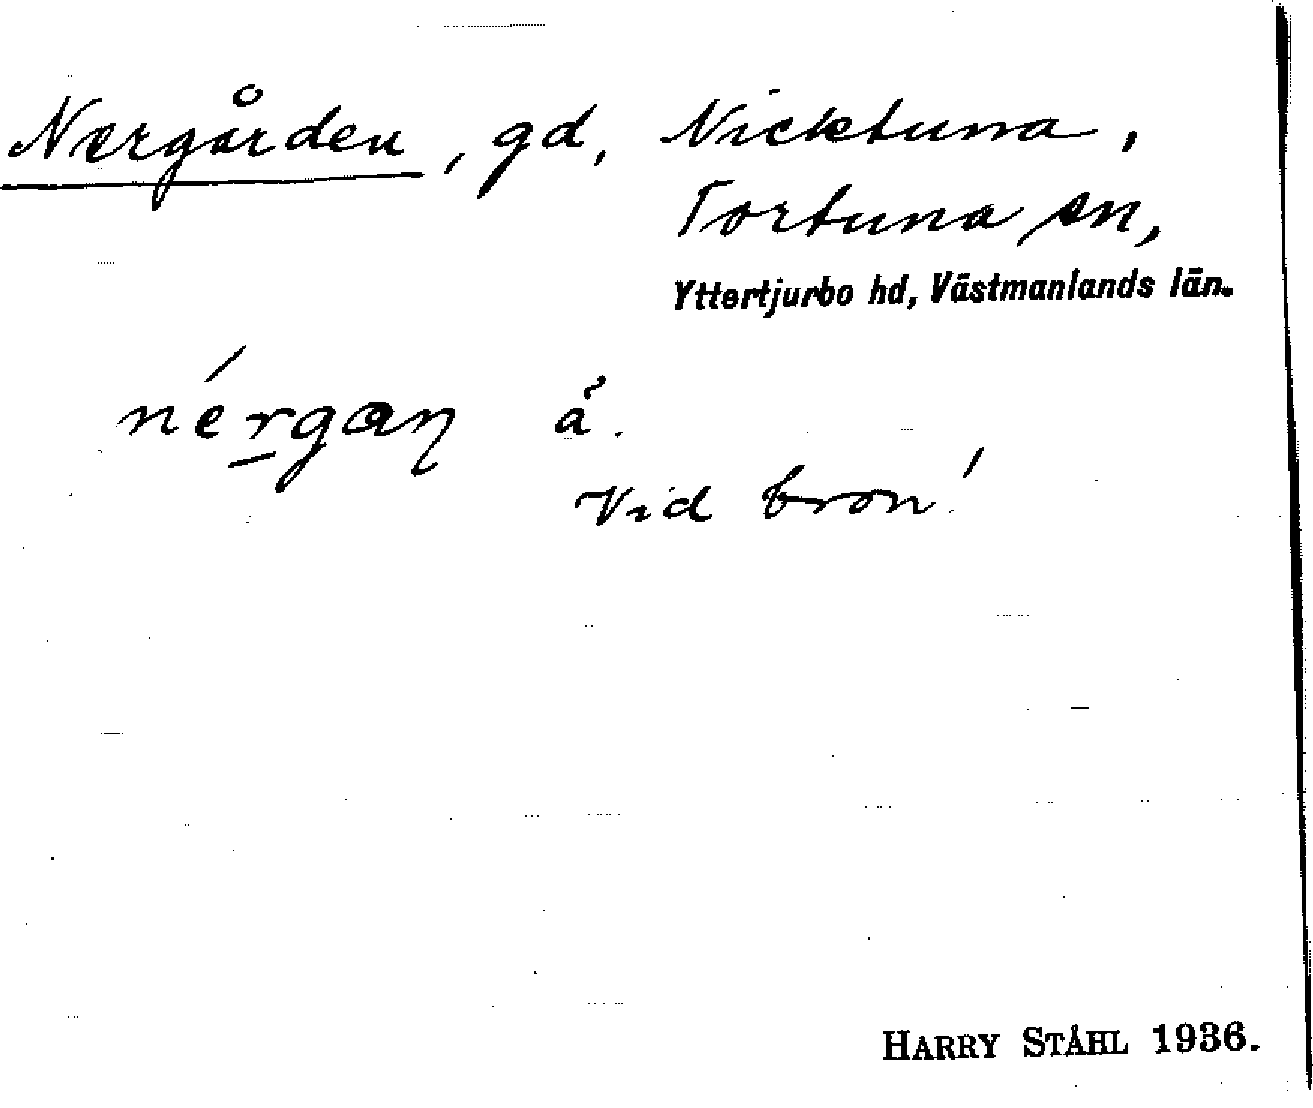 Nergården, gd, Nicktuna,
Tortuna sn,
Yttertjurbo hd, Västmanlands län.
nérgaɳ å.
Vid bron!
HARRY STÅHL 1936.